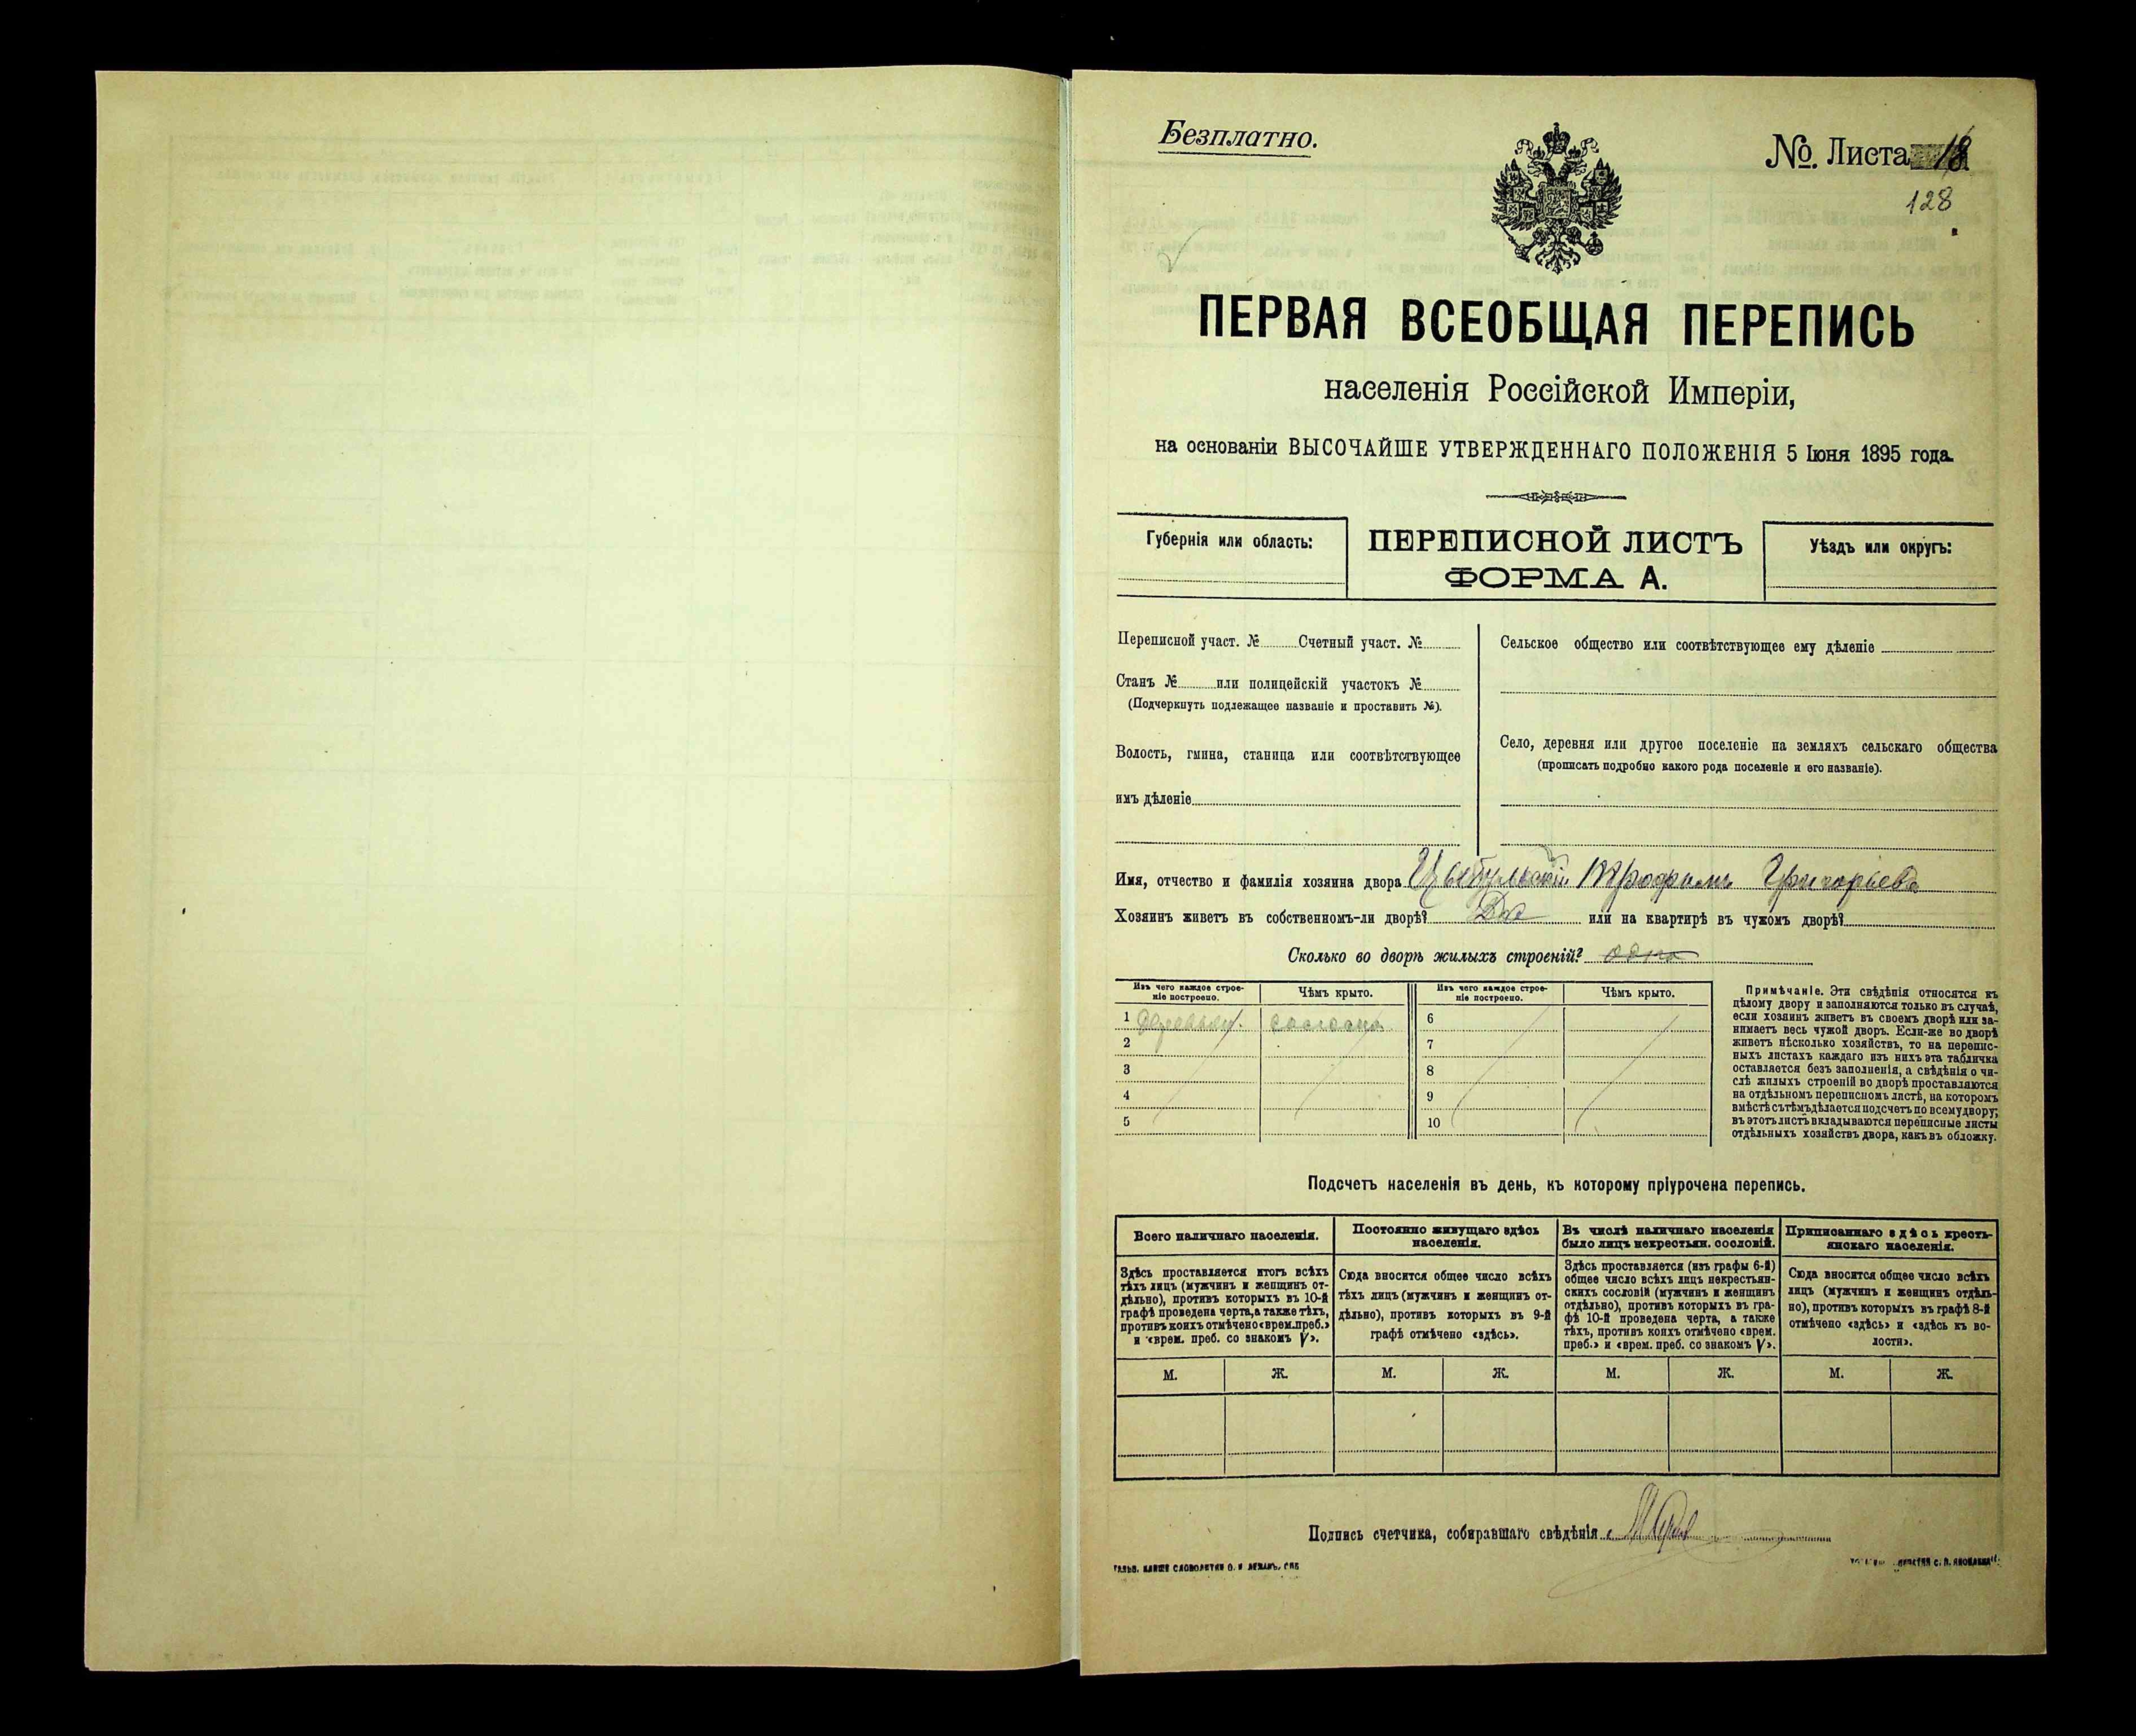 Безплатно.
№ Листа 18
128
ПЕРВАЯ ВСЕОБЩАЯ ПЕРЕПИСЬ
населенія Россійской Имперіи,
на основаніи ВЫСОЧАЙШЕ УТВЕРЖДЕННАГО ПОЛОЖЕНІЯ 5 Іюня 1895 года.
Губернія или область:
ПЕРЕПИСНОЙ ЛИСТЪ
ФОРМА А.
Уѣздъ или округъ:
Переписной участ. № Счетный участ. №
Станъ № или полицейскій участокъ №
(Подчеркнуть подлежащее названіе и проставить №).
Волость, гмина, станица или соотвѣтствующее
имъ дѣленіе
Сельское общество или соотвѣтствующее ему дѣленіе
Село, деревня или другое поселеніе на земляхъ сельскаго общества
(прописать подробно какого рода поселеніе и его названіе).
Имя, отчество и фамилія хозяина двора Цыбульскій Трофимъ Григорьевъ
Хозяинъ живетъ въ собственномъ-ли дворѣ? Да или на квартирѣ въ чужомъ дворѣ?
Сколько во дворѣ жилыхъ строеній? одно
Изъ чего каждое строе-
ніе построено.
Чѣмъ крыто.
Изъ чего каждое строе-
ніе построено.
Чѣмъ крыто.
1 Деревян. соломою 6
2 7
3 8
4 9
5 10
Примѣчаніе. Эти свѣдѣнія относятся къ
цѣлому двору и заполняются только въ случаѣ,
если хозяинъ живетъ въ своемъ дворѣ или за-
нимаетъ весь чужой дворъ. Если-же во дворѣ
живетъ нѣсколько хозяйствъ, то на перепис-
ныхъ листахъ каждаго изъ нихъ эта табличка
оставляется безъ заполненія, а свѣдѣнія о чи-
слѣ жилыхъ строеній во дворѣ проставляются
на отдѣльномъ переписномъ листѣ, на которомъ
вмѣстѣ съ тѣмъ дѣлается подсчетъ по всему двору;
въ этотъ листъ вкладываются переписные листы
отдѣльныхъ хозяйствъ двора, какъ въ обложку.
Подсчетъ населенія въ день, къ которому пріурочена перепись.
Всего наличнаго населенія.
Постоянно живущаго здѣсь
населенія.
Въ числѣ наличнаго населенія
было лицъ некрестьян. сословій.
Приписаннаго здѣсь кресть-
янскаго населенія.
Здѣсь проставляется итогъ всѣхъ
тѣхъ лицъ (мужчинъ и женщинъ от-
дѣльно), противъ которыхъ въ 10-й
графѣ проведена черта, а также тѣхъ,
противъ коихъ отмѣчено «врем. преб.»
и «врем. преб. со знакомъ V».
Сюда вносится общее число всѣхъ
тѣхъ лицъ (мужчинъ и женщинъ от-
дѣльно), противъ которыхъ въ 9-й
графѣ отмѣчено «здѣсь».
Здѣсь проставляется (изъ графы 6-й)
общее число всѣхъ лицъ некрестьян-
скихъ сословій (мужчинъ и женщинъ
отдѣльно), противъ которыхъ въ гра-
фѣ 10-й проведена черта, а также
тѣхъ, противъ коихъ отмѣчено «врем.
преб.» и «врем. преб. со знакомъ V».
Сюда вносится общее число всѣхъ
лицъ (мужчинъ и женщинъ отдѣль-
но), противъ которыхъ въ графѣ 8-й
отмѣчено «здѣсь» и «здѣсь къ во-
лости».
М. Ж. М. Ж. М. Ж. М. Ж.
Подпись счетчика, собиравшаго свѣдѣнія